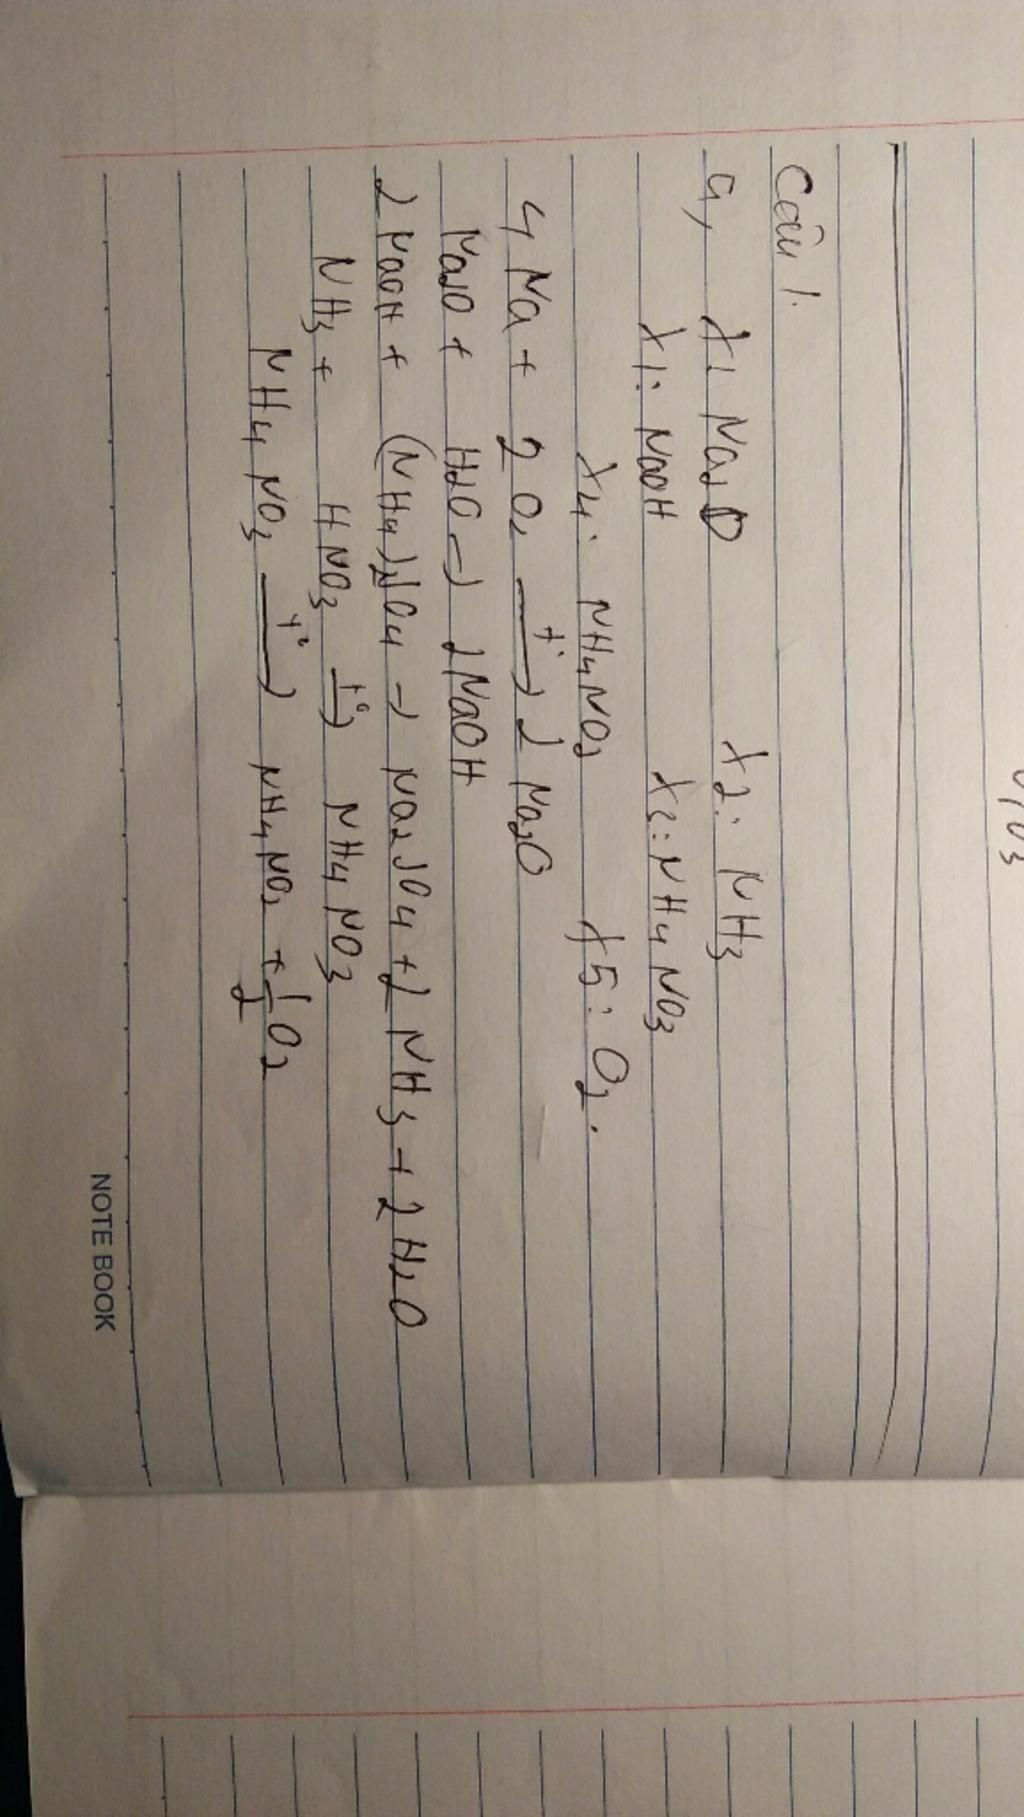 Câu 1.
a, X: Na2O X2: NH3
X1: NaOH X3: NH4NO3
X4: NH4NO2 X5: O2.
4Na + 2O2 —t°→ 2Na2O
Na2O + H2O → 2NaOH
2NaOH + (NH4)2SO4 → Na2SO4 + 2NH3 + 2H2O
NH3 + HNO3 —t°→ NH4NO3
NH4NO3 —t°→ NH4NO2 + 1/2 O2
NOTE BOOK